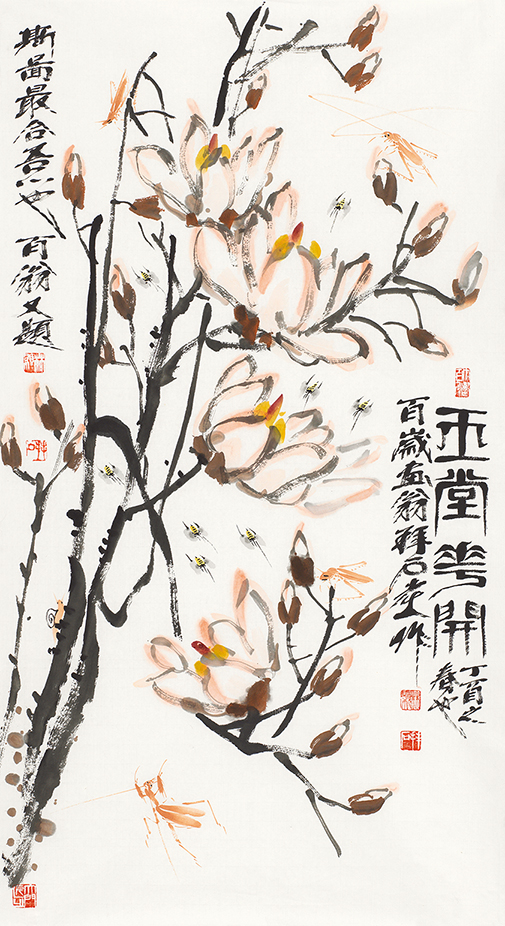 玉堂華開
丁酉之
春也
百歲画翁拜石堂作
斯啚最合吾心也 百翁又題